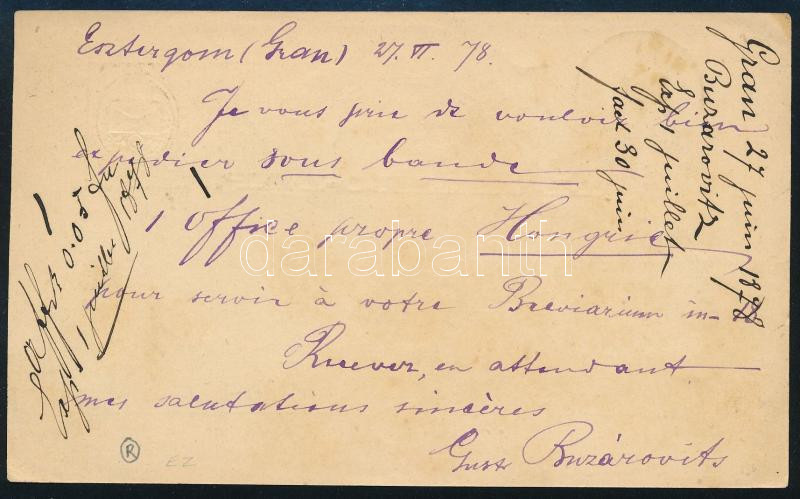 Esztergom (Gran) 27. VI. 78.
Je vous prie de vouloir bien
expédier sous bande
1 Office propre Hongrie
pour servir à votre Breviarium in-
Recevez, en attendant
mes salutations sincères
Gust Buzárovits
Gran 27 juin 1878
Buzarovitz
Exp 1 juillet
fact 30 juin
0.05
1 juillet
1878
darabanth
R
EZ